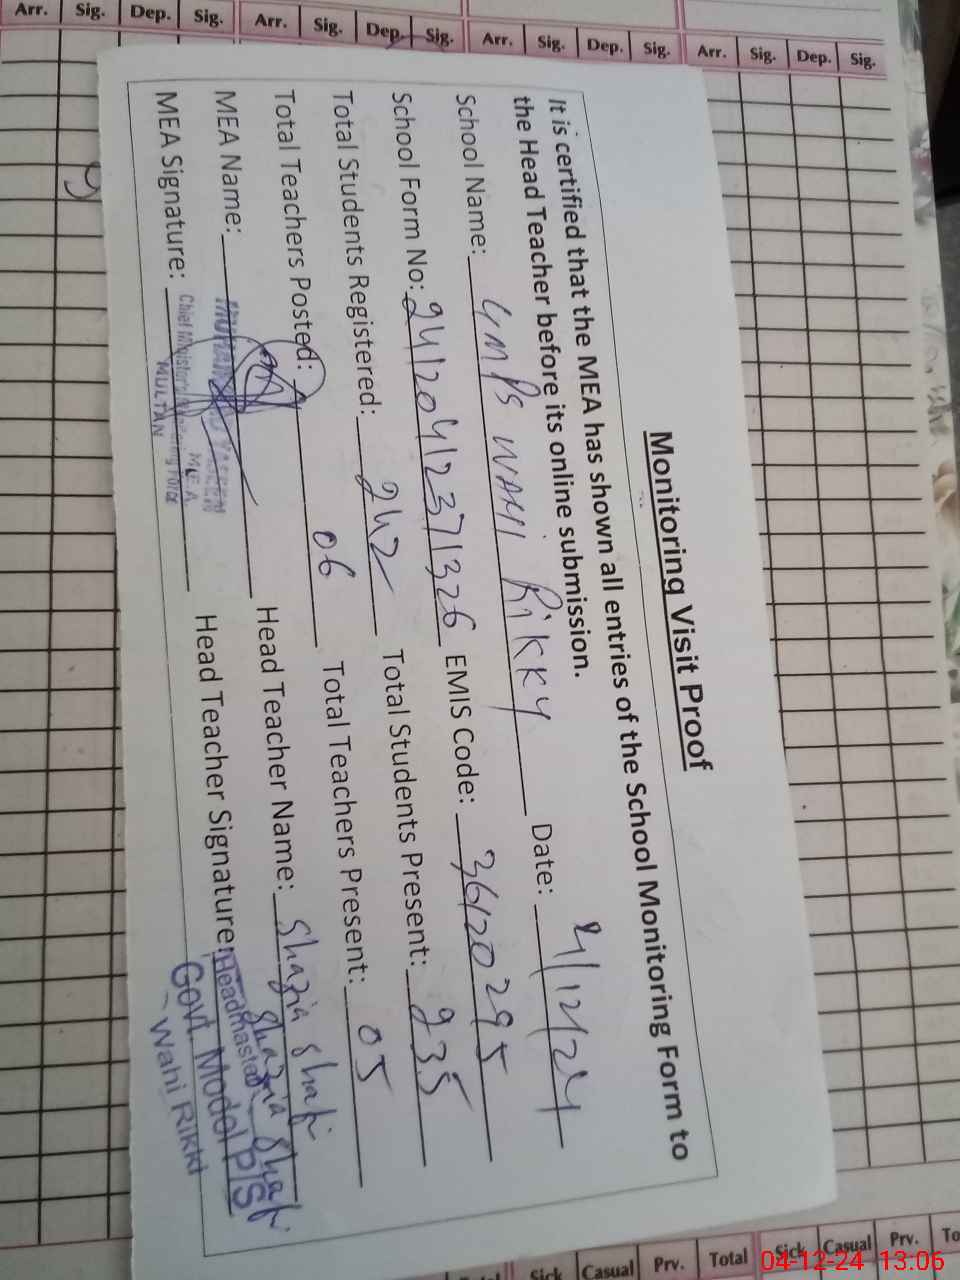 Arr. Sig. Dep. Sig. Arr. Sig. Dep. Sig. Arr. Sig. Dep. Sig. Arr. Sig. Dep. Sig.
Monitoring Visit Proof
It is certified that the MEA has shown all entries of the School Monitoring Form to
the Head Teacher before its online submission.
School Name: GMPS WAHI RIKKY Date: 4/12/24
School Form No: EMIS Code: 36120295
Total Students Registered: 242 Total Students Present: 235
Total Teachers Posted: 06 Total Teachers Present: 05
MEA Name: Head Teacher Name: Shazia Shafi
MEA Signature: Head Teacher Signature: Shazia Shafi
M.E.A
MULTAN
Headmaster
Govt. Model P/S
Wahi Rikki
Sick Casual Prv. Total Sick Casual Prv.
04-12-24 13:06